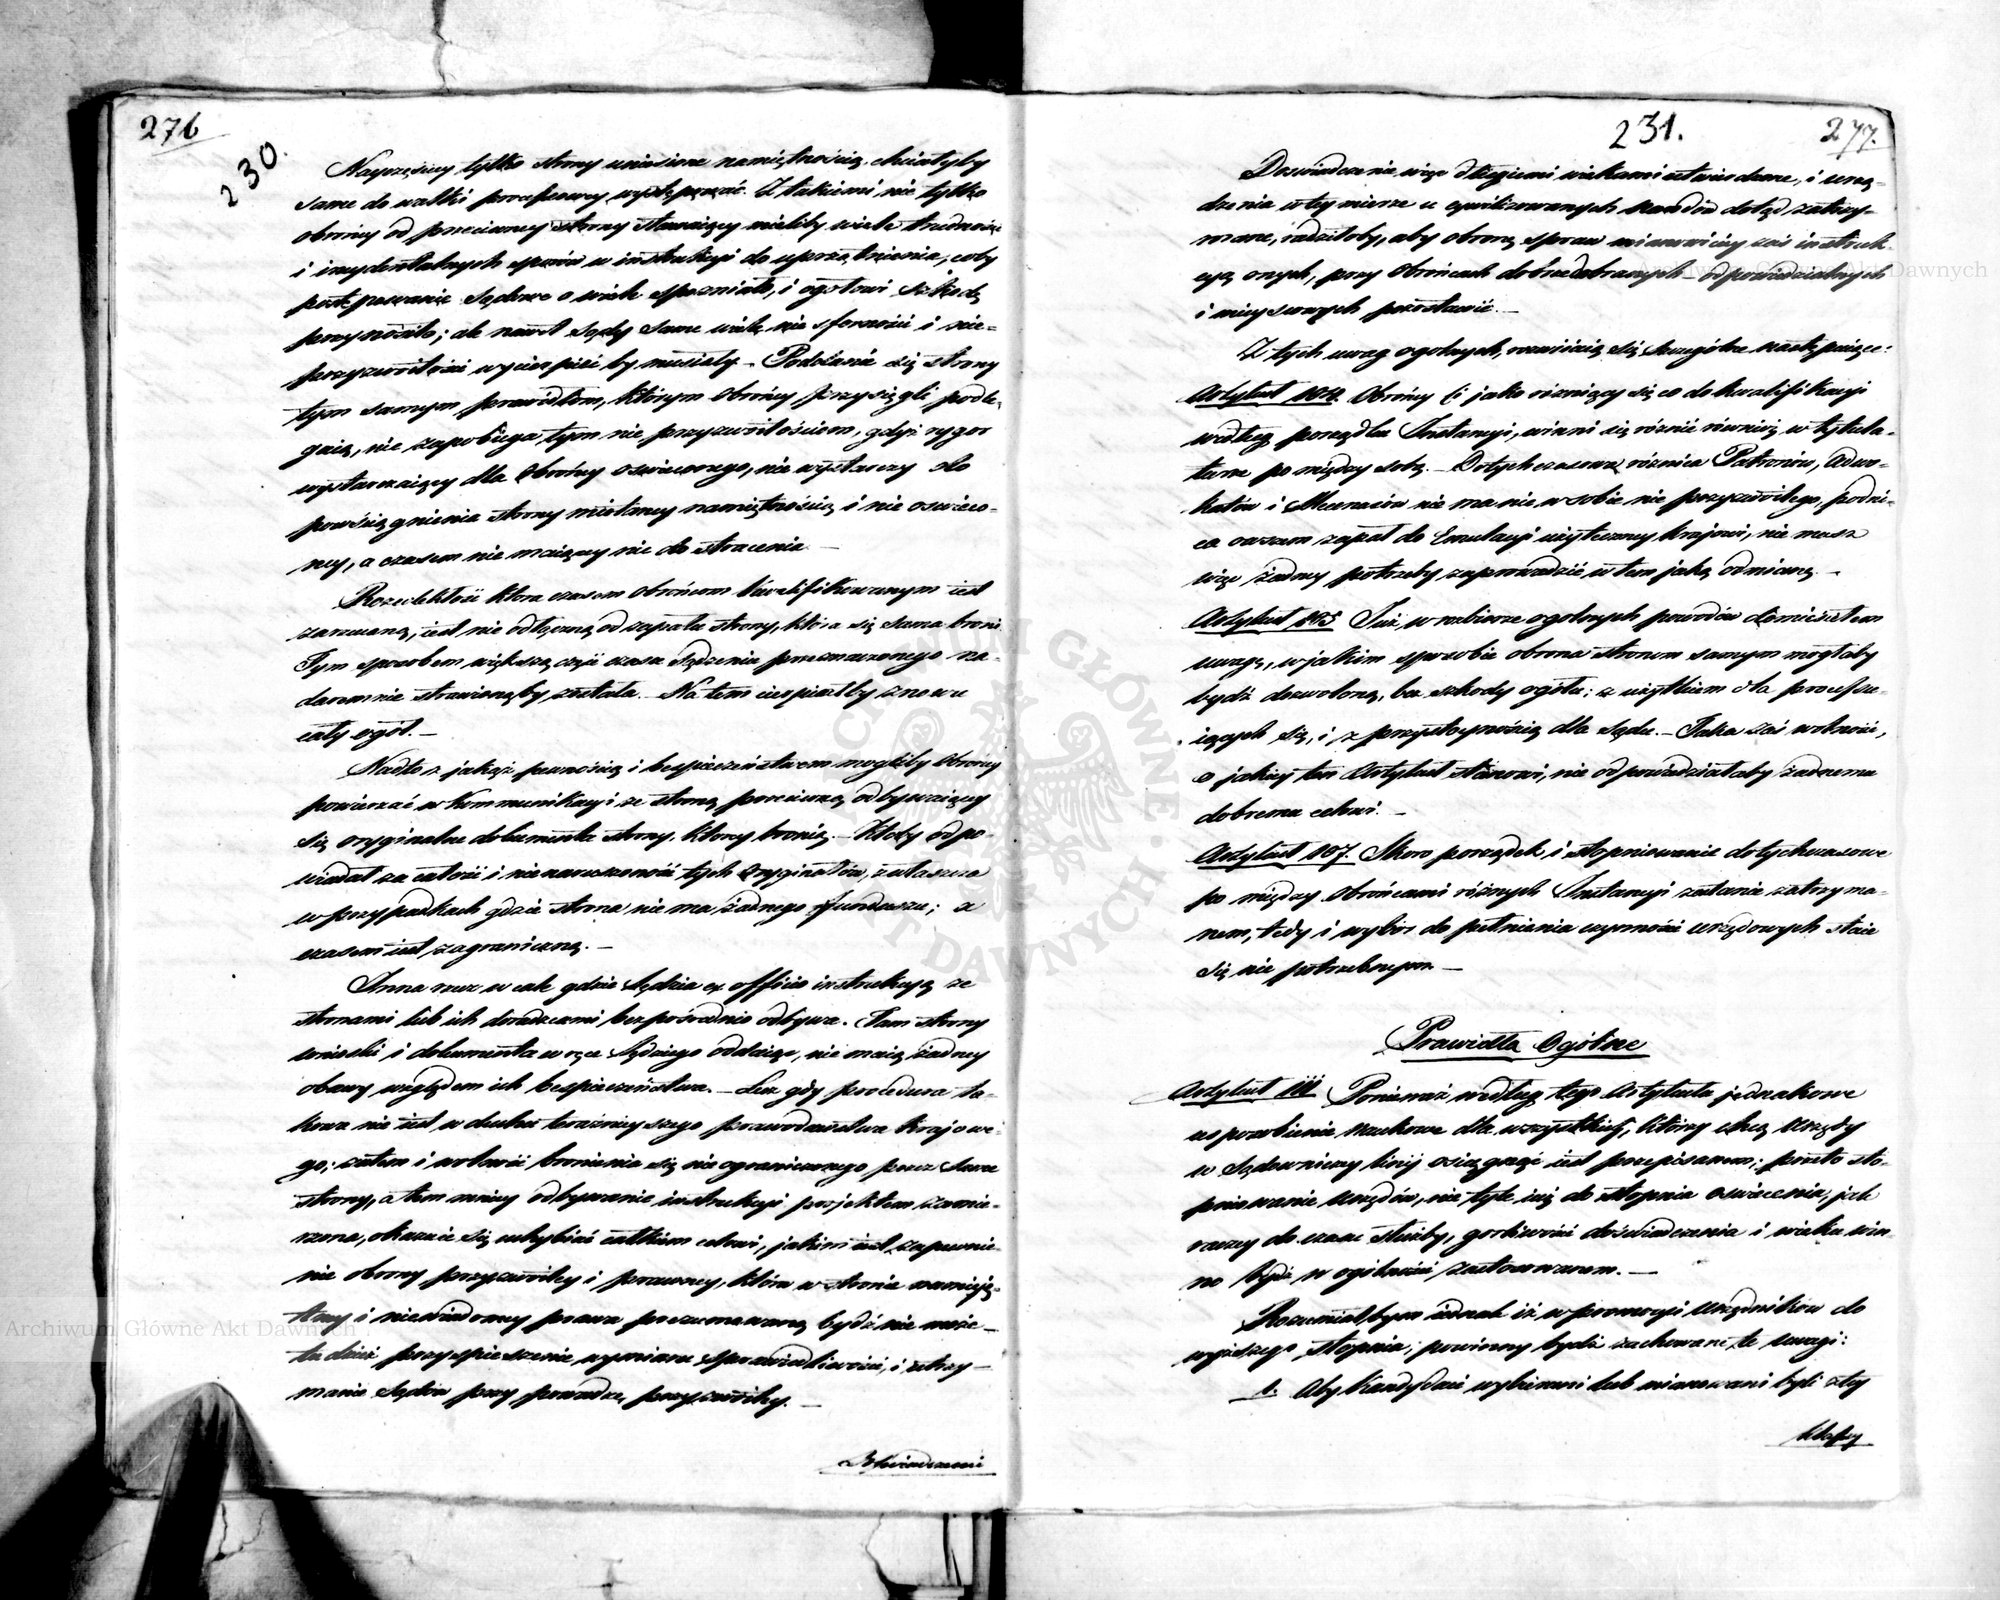 276
230.
Nayczęściey tylko strony uniesione namiętnością, chciałyby
same do walki processowey występować. Z takiemi nie tylko
obrońcy od przeciwney strony stawaiący mieliby wiele trudności
i incydentalnych sporów w instrukcyi do uprzątnienia, coby
postępowanie Sądowe o wiele spózniało, i ogołowi szkodę
przynosiło; ale nawet Sądy same wiele nie sforności i nie=
przyzwoitości wycierpieć by musiały. – Poddanie się strony
tym samym prawidłom, którym Obrońcy przysięgli podle=
gaią, nie zapobiega tym nie przyzwoitościom, gdyż rygor
wystarczaiący dla Obrońcy oswieconego, nie wystarczy do
powściągnienia strony miotaney namiętnością i nie oswieco=
ney, a czasem nie maiący nic do stracenia. –
Rozwlekłość która czasem Obrońcom kwalifikowanym iest
zarzucaną, iest nie odłączną od zapału strony, która się sama broni.
Tym sposobem większa część czasu Sądzenia przeznaczonego na=
daremnie strawionąby została. – Na tem cierpiałby znowu
cały ogół. –
Nadto z jakąż pewnością i bezpieczeństwem mogliby Obrońcy
powierzać w Kommunikacyi ze stroną przeciwną odbywaiącey
się oryginalne dokumenta strony, którey bronią. – Któżby odpo=
wiadał za całość i nienaruszoność tych Oryginałów, zwłaszcza
w przypadkach gdzie strona nie ma żadnego funduszu; a
czasem iest zagraniczną. –
Inna rzecz w cale gdzie Sędzia ex officio instrukcyą ze
stronami lub ich doradzcami bezpośrednio odbywa. Tam strony
wnioski i dokumenta w ręce Sędziego oddaiąc, nie maią żadney
obawy względem ich bezpieczeństwa. – Lecz gdy procedura ta=
kowa nie iest w duchu teraźnieyszego prawodawstwa Krajowe=
go, zatem i wolność bronienia się nieograniczonego przez same
strony, a tem mniey odbywanie instrukcyi projektem zamie=
rzona, okazuie się uchybiać całkiem celowi, jakim iest zapewnie=
nie obrony przyzwoitey i prawney, która w stronie namięt=
ney i niewiadomey prawa przeznawaną bydź nie może –
tudzież przyspieszenie wymiaru Sprawiedliwości, i utrzy –
manie Sądów przy powadze przyzwoitey. –
Doświadczenie
231.
277.
Doswiadczenie więc długiemi wiekami stwierdzone, i urzą=
dzenia w tey mierze u cywilizowanych Narodów dotąd zatrzy=
mane, radziłoby, aby obronę spraw mianowicie zaś instruk=
cyą onych, przy Obrońcach dobrze dobranych – odpowiedzialnych
i mieyscowych pozostawić. –
Z tych uwag ogolnych, rozwiiaią się szczególne następuiące:
Artykuł 104. Obrońcy (i jako różniący się co do kwalifikacyi
według porządku Instancyi, winni się różnić również w tytula=
turze pomiędzy sobą. – Dotychczasowa różnica Patronów, Adwo=
katów i Mecenasów nie ma nic w sobie nie przyzwoitego, podnie=
ca owszem zapał do Emulacyi użyteczney krajowi, nie masz
więc żadney potrzeby zaprowadzić w tem jaką odmianę. –
Artykuł 105 Już w rozbiorze ogolnych powodów domieściłem
uwagę, w jakim sposobie obrona stronom samym mogłaby
bydź dozwoloną, bez szkody ogółu; z użytkiem dla processu=
iących się, i z przystoynością dla Sądu. – Taka zaś wolność,
o jakiey ten Artykuł stanowi, nie odpowiedziałaby żadnemu
dobremu celowi. –
Artykuł 107. Skoro porządek i stopniowanie dotychczasowe
po między Obrońcami różnych Instancyi zostanie zatrzyma=
nem, tedy i wybór do pełnienia czynności urzędowych staie
się nie potrzebnym. –
Prawidła Ogólne
Artykuł 111 Ponieważ według tego Artykułu jednakowe
usposobienie naukowe dla wszystkich, którzy chcą Urzędy
w Sądowniczey linij osiągnąć iest przepisanem; przeto sto=
pniowanie Urzędów, nie tyle już do stopnia oświecenia, jak
raczey do czasu służby, gorliwości doświadczenia i wieku win=
no bydź w ogólności zastosowanem. –
Rozumiałbym iednak iż w promocyi Urzędników do
wyższego stopnia, powinny bydź zachowane te uwagi:
1. Aby Kandydaci wybierani lub mianowani byli z tey
klassy